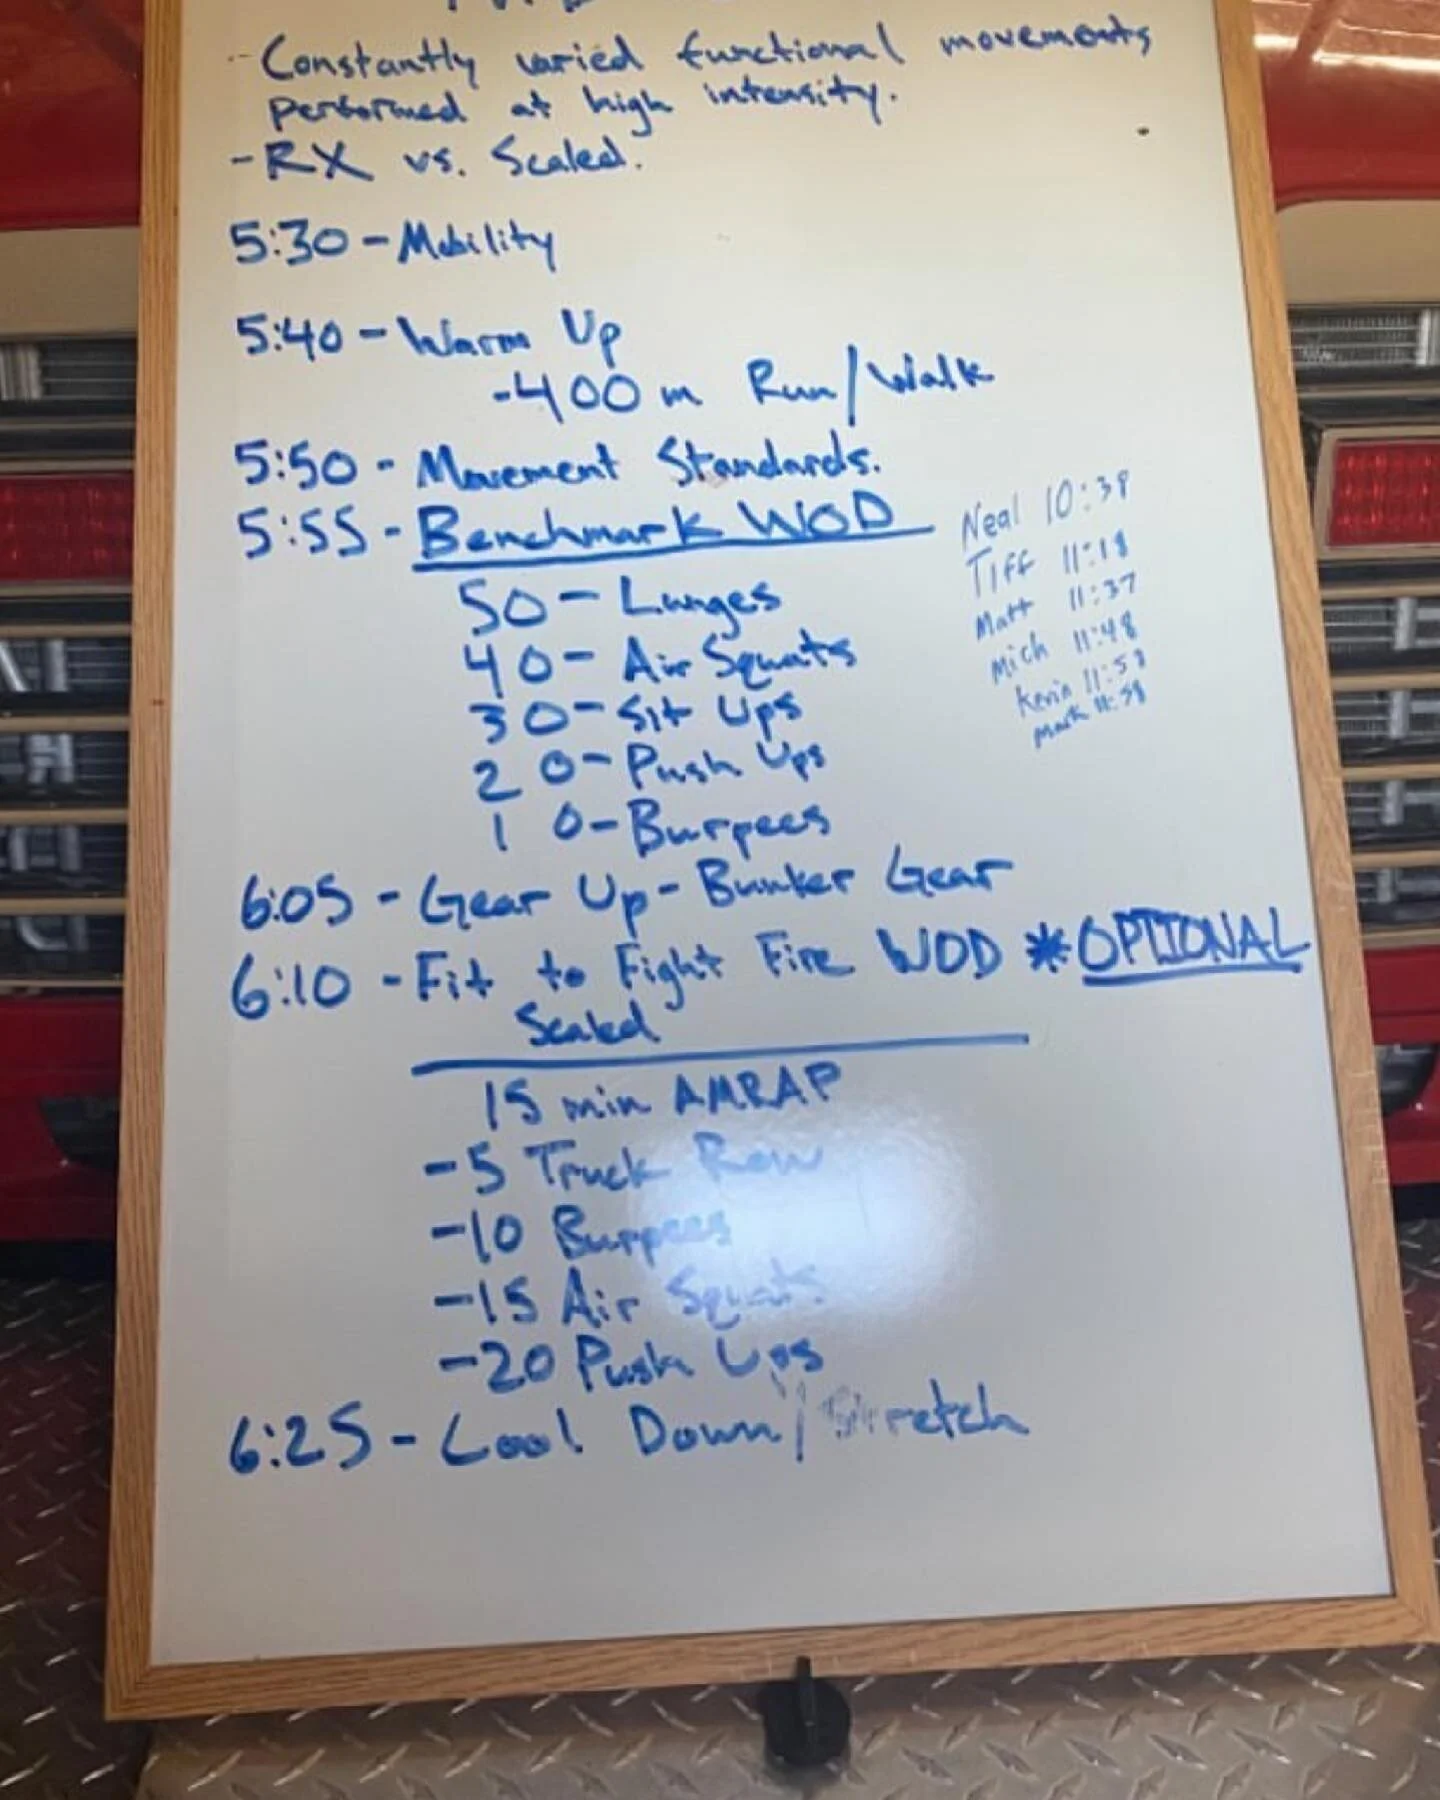 - Constantly varied functional movements
performed at high intensity.
- RX vs. Scaled.
5:30 - Mobility
5:40 - Warm Up
- 400 m Run/Walk
5:50 - Movement Standards.
5:55 - Benchmark WOD
50 - Lunges
40 - Air Squats
30 - Sit Ups
20 - Push Ups
10 - Burpees
Neal 10:38
Tiff 11:18
Matt 11:37
Mich 11:48
Kevin 11:58
Mark 11:58
6:05 - Gear Up - Bunker Gear
6:10 - Fit to Fight Fire WOD *OPTIONAL
Scaled
15 min AMRAP
- 5 Truck Row
- 10 Burpees
- 15 Air Squats
- 20 Push Ups
6:25 - Cool Down/Stretch